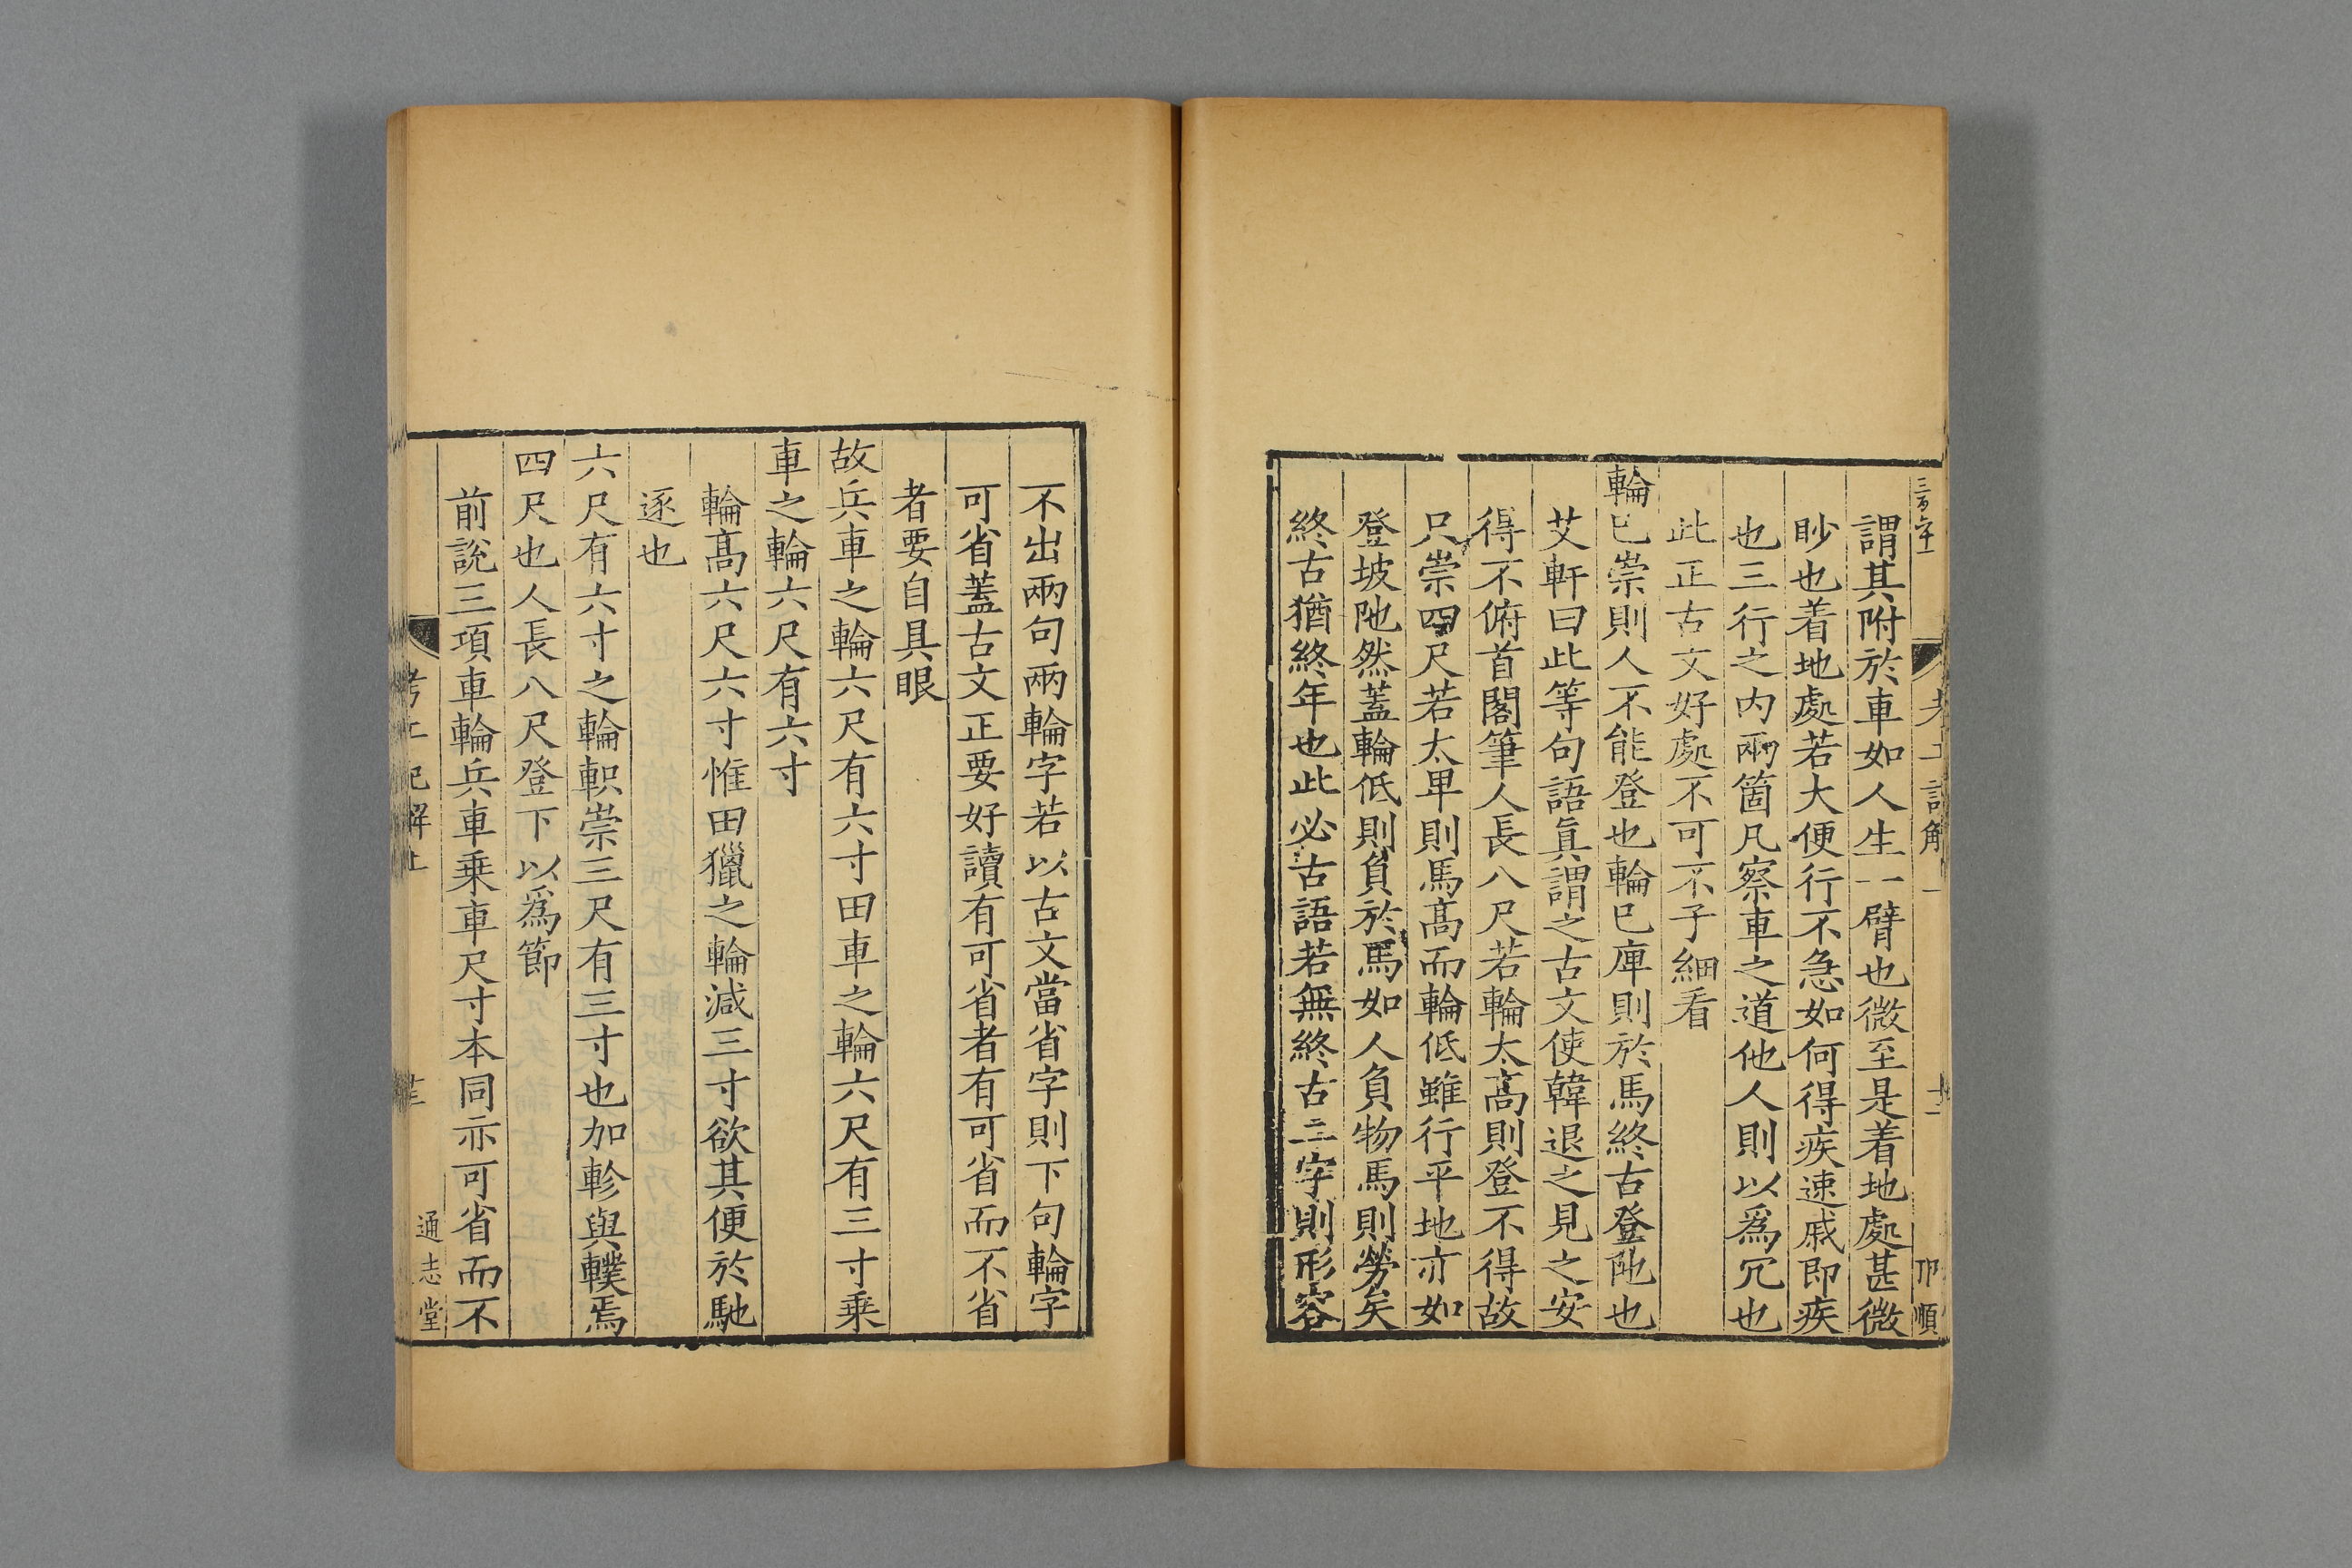 謂其附於車如人生一臂也微至是着地處甚微
眇也着地處若大便行不急如何得疾速戚即疾
也三行之内兩箇凡察車之道他人則以爲冗也
此正古文好處不可不子細看
輪已崇則人不能登也輪已庳則於馬終古登阤也
艾軒曰此等句語眞謂之古文使韓退之見之安
得不俯首閣筆人長八尺若輪太高則登不得故
只崇四尺若太卑則馬高而輪低雖行平地亦如
登坡阤然蓋輪低則負於馬如人負物馬則勞矣
終古猶終年也此必古語若無終古二字則形容
不出兩句兩輪字若以古文當省字則下句輪字
可省蓋古文正要好讀有可省者有可省而不省
者要自具眼
故兵車之輪六尺有六寸田車之輪六尺有三寸乗
車之輪六尺有六寸
輪高六尺六寸惟田獵之輪減三寸欲其便於馳
逐也
六尺有六寸之輪軹崇三尺有三寸也加軫與轐焉
四尺也人長八尺登下以爲節
前說三項車輪兵車乗車尺寸本同亦可省而不
考工記解上
通志堂